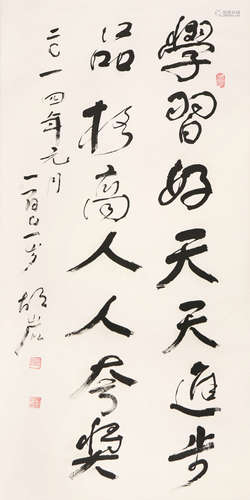 學習好天天進步
品格高人人夸獎
二〇一四年元月
一百〇一岁 胡